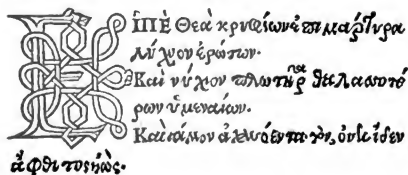 ΕἸΠῈ Θεὰ κρυφίων ἐπιμάρτυρα
λύχνον ἐρώτων·
Καὶ νύχιον πλωτῆρα θαλασσοπό
ρων ὑμεναίων.
Καὶ γάμον ἀχλυόεντα τὸν, οὐκ εἶδεν
ἄφθιτος ἠώς·